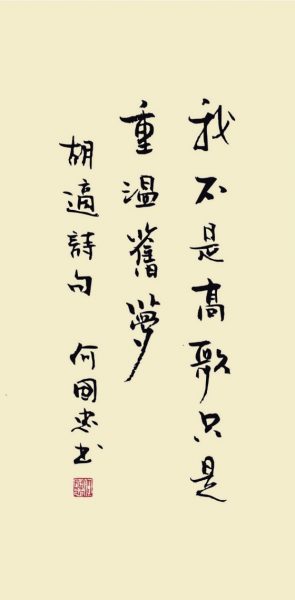 我不是高歌只是
重温舊夢
胡適詩句 何國忠书